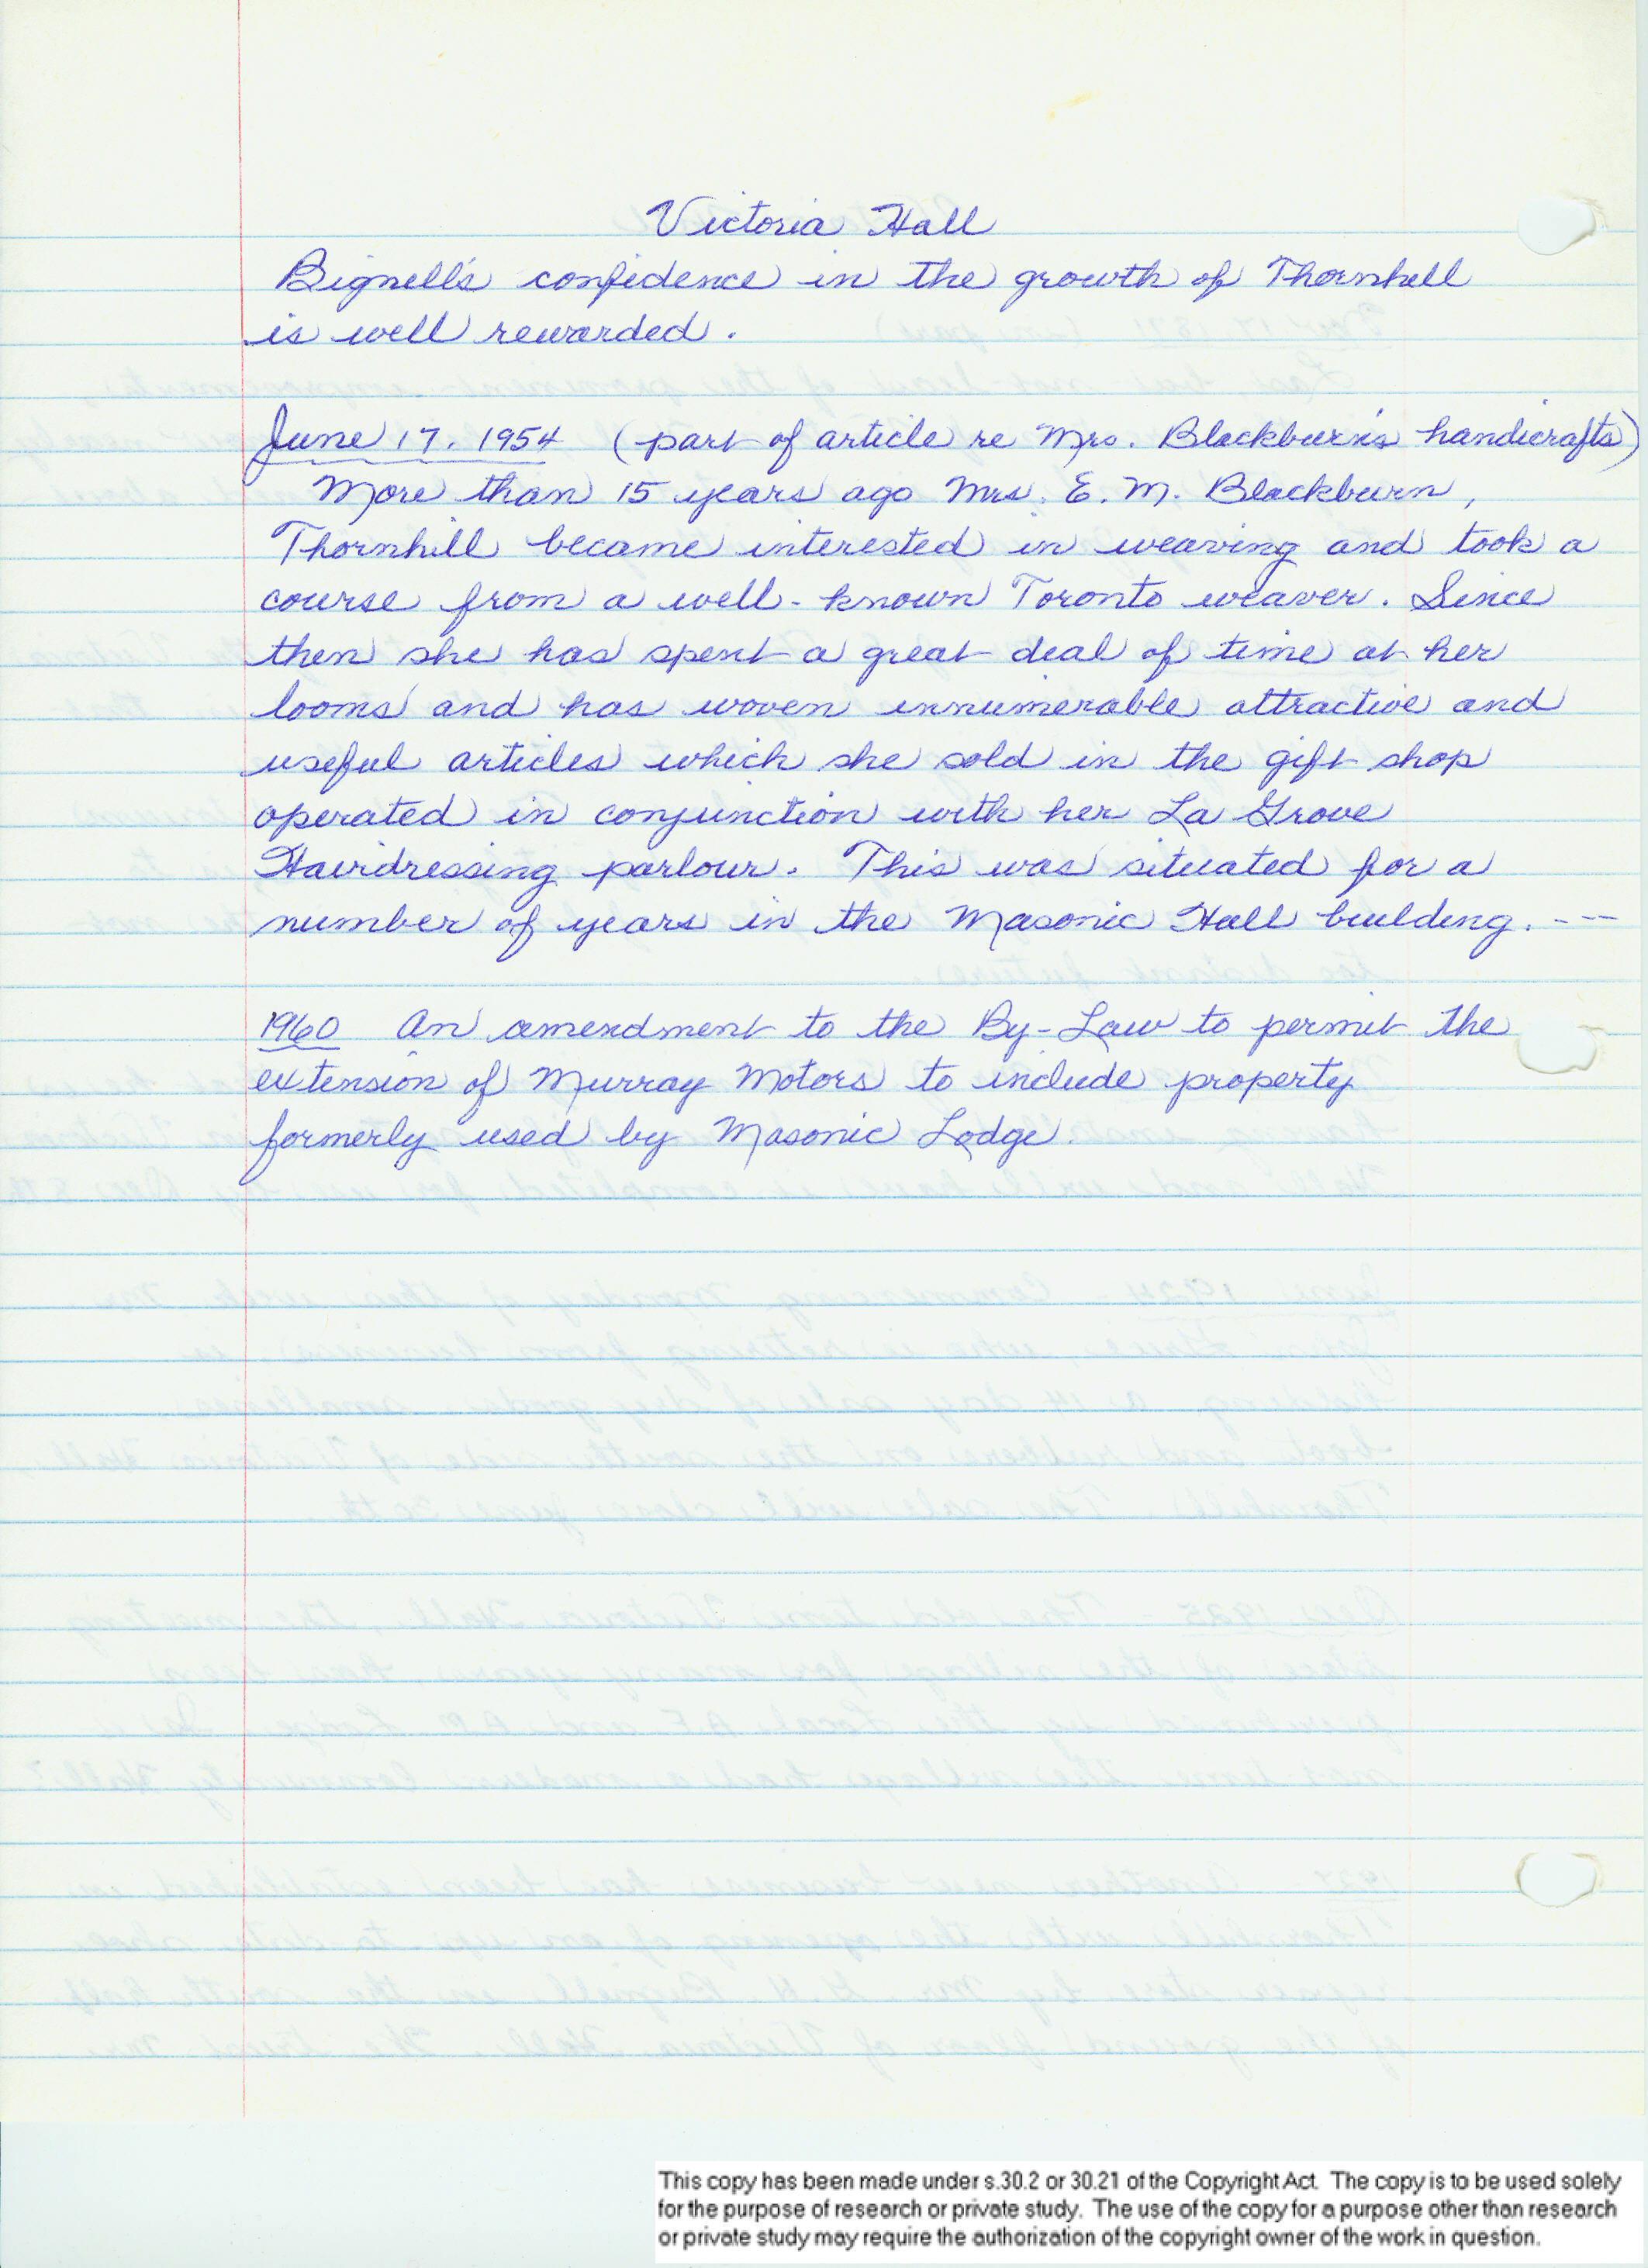 Victoria Hall
Bignell's confidence in the growth of Thornhill
is well rewarded.
June 17, 1954 (part of article re Mrs. Blackburn's handicrafts)
More than 15 years ago Mrs. E. M. Blackburn,
Thornhill became interested in weaving and took a
course from a well-known Toronto weaver. Since
then she has spent a great deal of time at her
looms and has woven innumerable attractive and
useful articles which she sold in the gift shop
operated in conjunction with her La Grove
Hairdressing parlour. This was situated for a
number of years in the Masonic Hall building. ---
1960 An amendment to the By-Law to permit the
extension of Murray Motors to include property
formerly used by Masonic Lodge.
This copy has been made under s.30.2 or 30.21 of the Copyright Act. The copy is to be used solely
for the purpose of research or private study. The use of the copy for a purpose other than research
or private study may require the authorization of the copyright owner of the work in question.